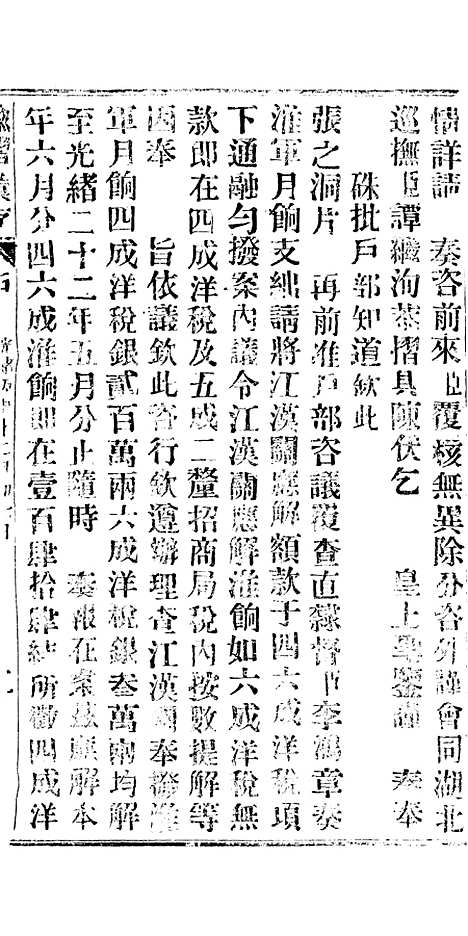 情詳請　奏咨前來臣覆核無異除分咨外謹會同湖北
巡撫臣譚繼洵恭摺具陳伏乞　皇上聖鑒謹　奏奉
硃批戶部知道欽此
張之洞片　再前准戶部咨議覆查直隸督臣李鴻章奏
淮軍月餉支絀請將江漢關應解額款于四六成洋稅項
下通融勻撥案內議令江漢關應解淮餉如六成洋稅無
款即在四成洋稅及五成二釐招商局稅內按數提解等
因奉　旨依議欽此咨行欽遵辦理查江漢關奉撥淮
軍月餉四成洋稅銀貳百萬兩六成洋稅銀叁萬兩均解
至光緒二十二年五月分止隨時　奏報在案茲應解本
年六月分四六成淮餉即在壹百肆拾肆結所徵四成洋